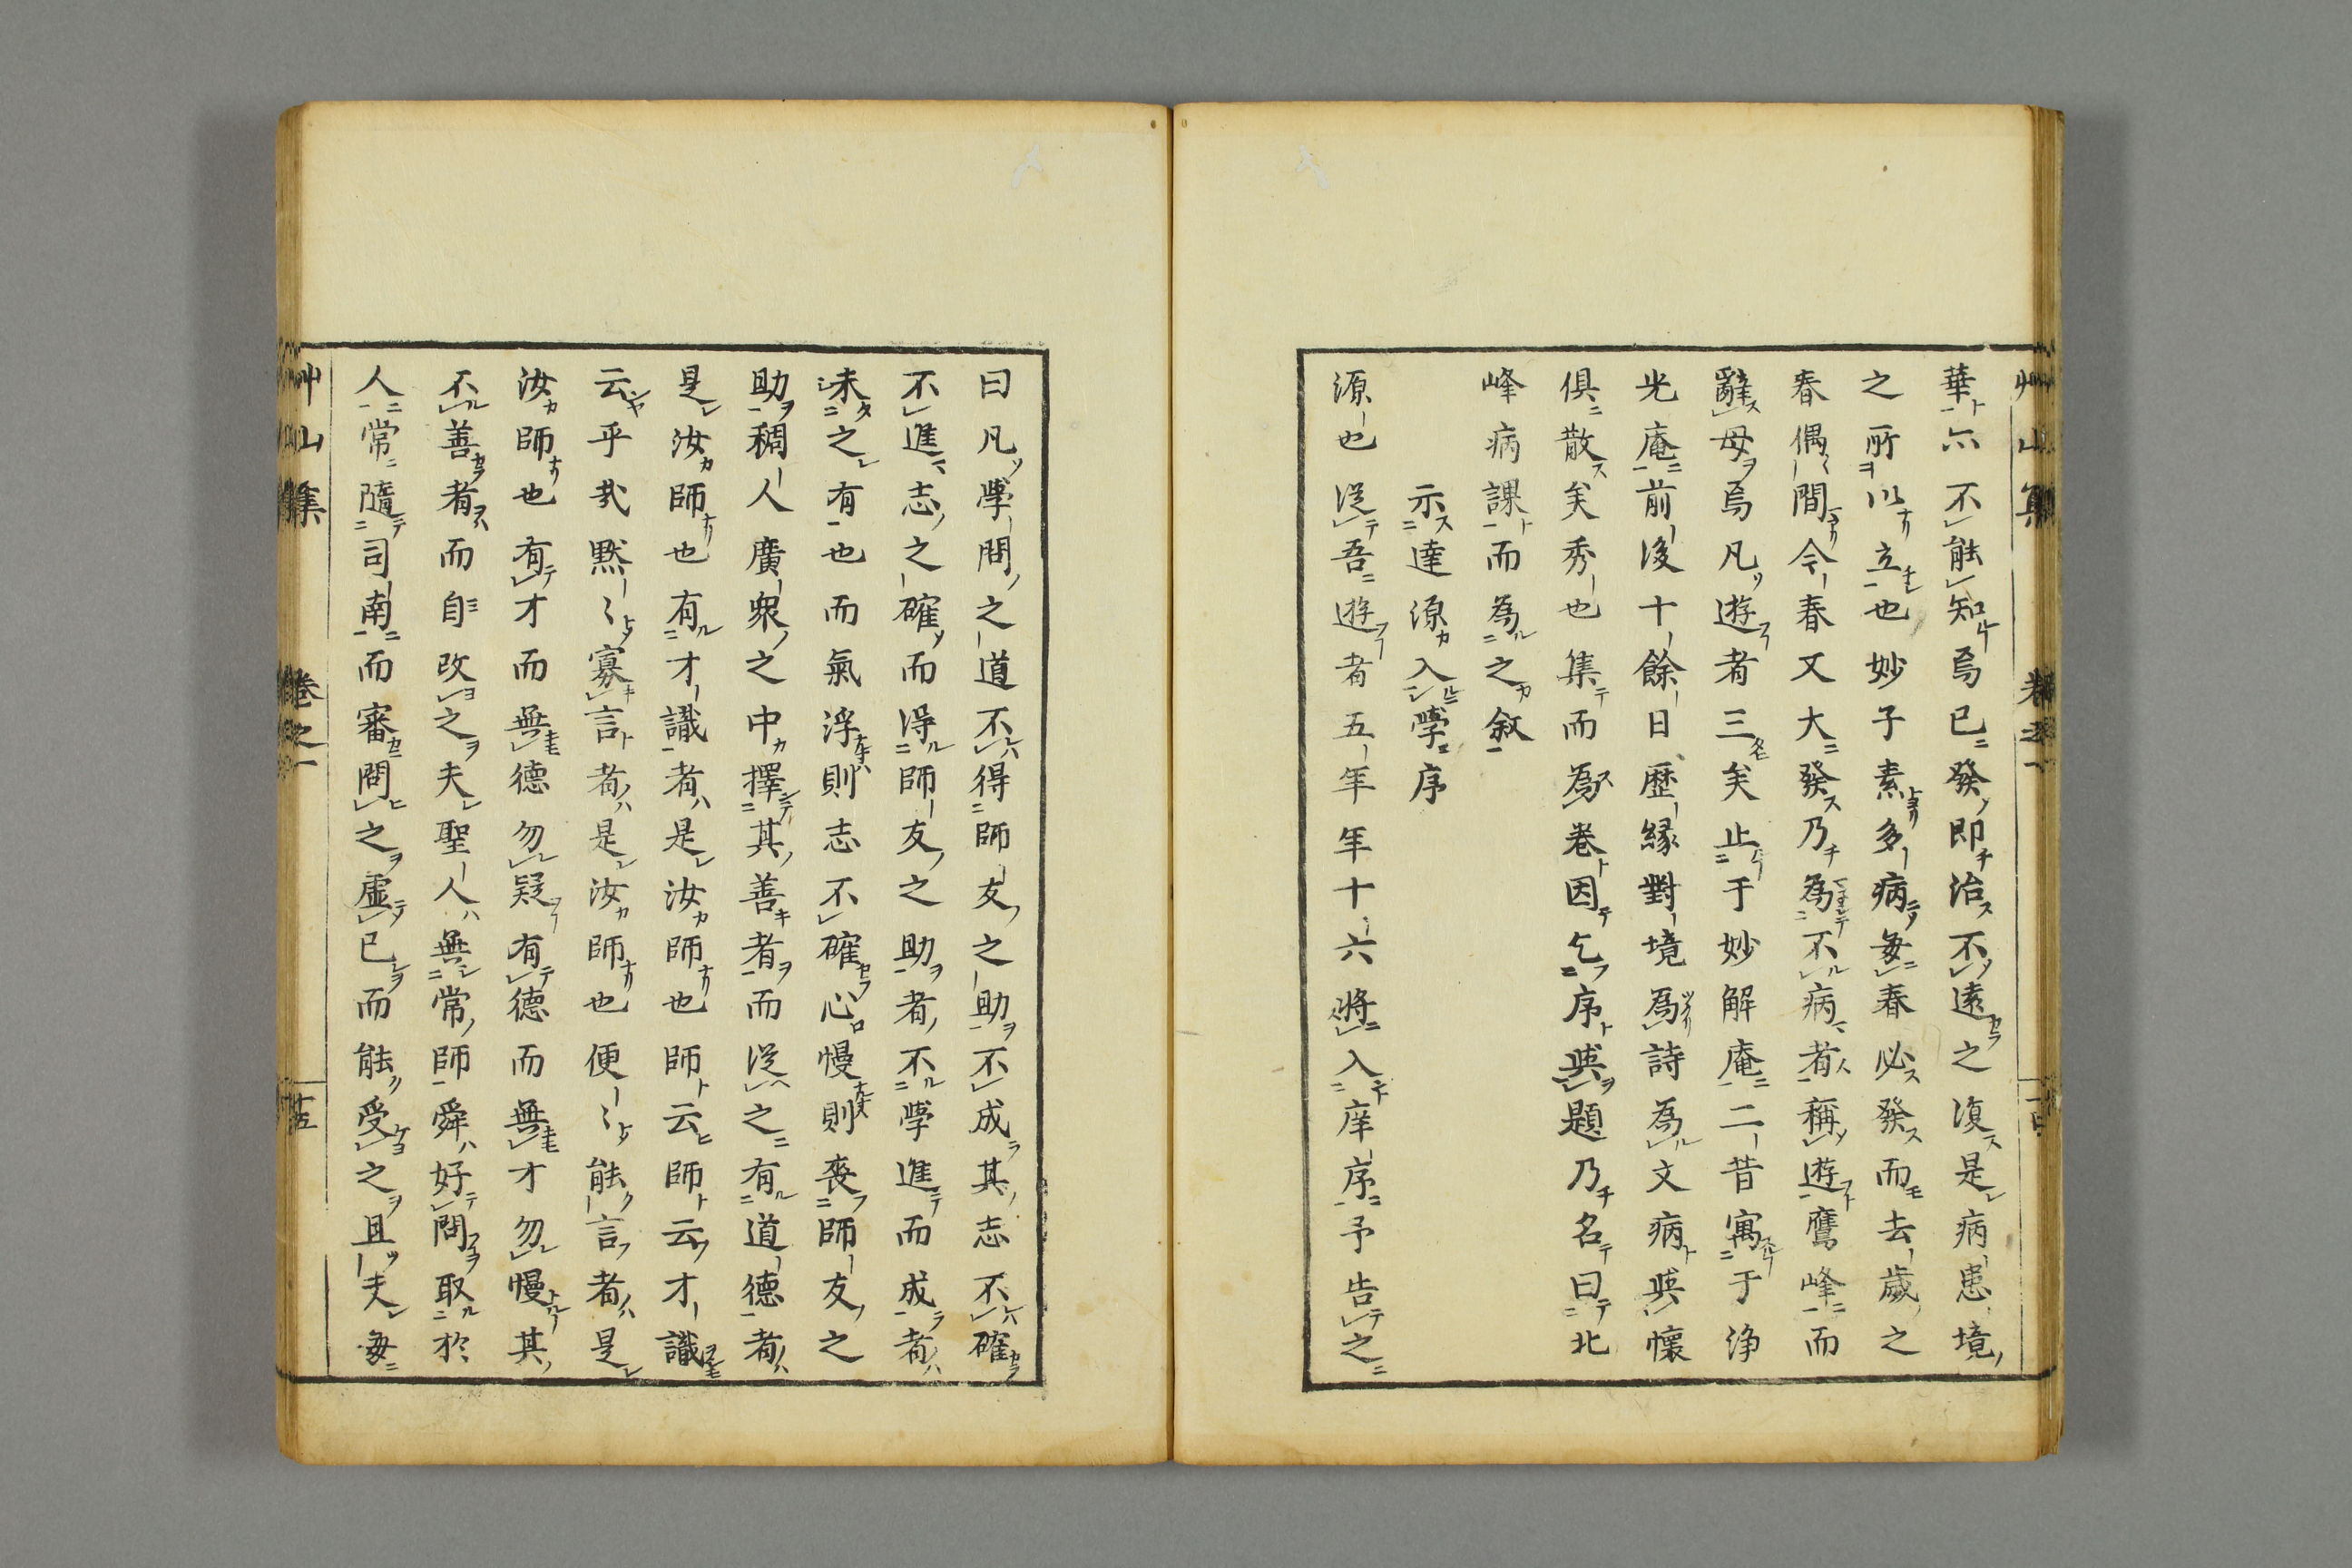 華亦不能知焉已發即治不遠之復是病患境
之所以立也妙子素多病每春必發而去歳之
春偶間今春又大發乃為不病者稱遊鷹峰而
辭母焉凡遊者三矣止于妙解庵二昔寓于浄
光庵前後十餘日歷縁對境為詩為文病與懷
俱散矣秀也集而為卷因乞序與題乃名曰北
峰病課而為之敘
示達源入學序
源也從吾遊者五年年十六將入庠序予告之
曰凡學問之道不得師友之助不成其志不確
不進志之確而得師友之助者不學進而成者
未之有也而氣浮則志不確心慢則喪師友之
助稠人廣衆之中擇其善者而從之有道德者
是汝師也有才識者是汝師也師云師云才識
云乎哉默〻寡言者是汝師也便〻能言者是
汝師也有才而無德勿疑有德而無才勿慢其
不善者而自改之夫聖人無常師舜好問取於
人常隨司南而審問之虛己而能受之且夫每
艸山集 卷之一 十五